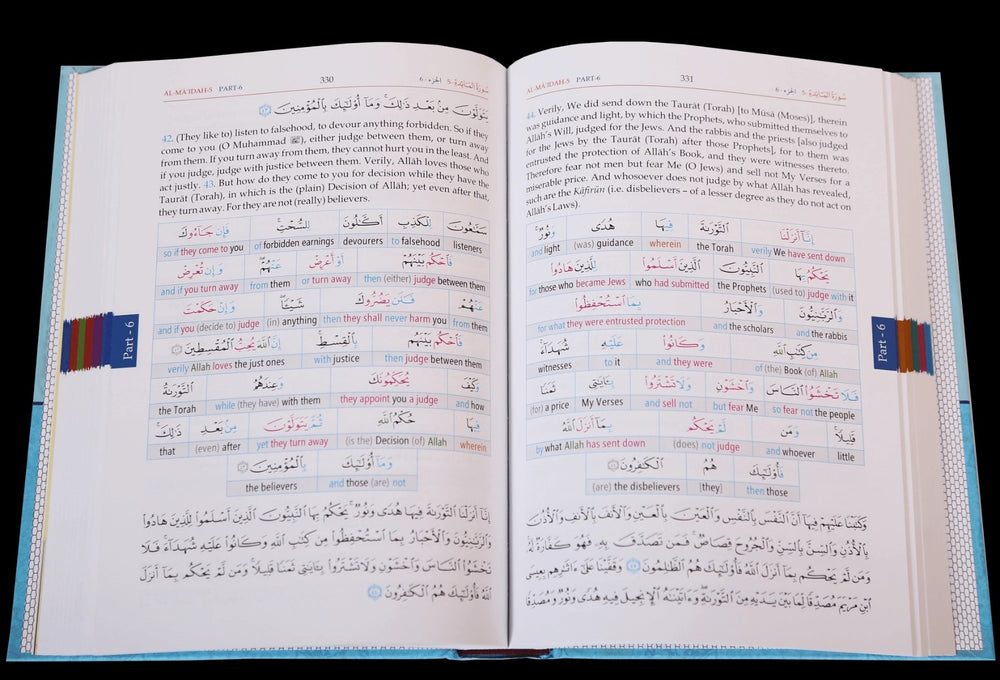 AL-MĀ'IDAH-5 PART-6 330 الجزء - ٦ سُورَةُ المَائِدَةِ -٥
يَتَوَلَّوْنَ مِنْ بَعْدِ ذَٰلِكَ ۚ وَمَا أُو۟لَٰٓئِكَ بِٱلْمُؤْمِنِينَ ٤٣
42. (They like to) listen to falsehood, to devour anything forbidden. So if they
come to you (O Muhammad ﷺ), either judge between them, or turn away
from them. If you turn away from them, they cannot hurt you in the least. And
if you judge, judge with justice between them. Verily, Allāh loves those who
act justly. 43. But how do they come to you for decision while they have the
Taurāt (Torah), in which is the (plain) Decision of Allāh; yet even after that,
they turn away. For they are not (really) believers.
سَمَّٰعُونَ لِلْكَذِبِ أَكَّٰلُونَ لِلسُّحْتِ ۚ فَإِن جَآءُوكَ
so if they come to you of forbidden earnings devourers to falsehood listeners
فَٱحْكُم بَيْنَهُمْ أَوْ أَعْرِضْ عَنْهُمْ ۖ وَإِن تُعْرِضْ
and if you turn away from them or turn away then (either) judge between them
عَنْهُمْ فَلَن يَضُرُّوكَ شَيْـًٔا ۖ وَإِنْ حَكَمْتَ
and if you (decide to) judge (in) anything then they shall never harm you from them
فَٱحْكُم بَيْنَهُم بِٱلْقِسْطِ ۚ إِنَّ ٱللَّهَ يُحِبُّ ٱلْمُقْسِطِينَ ٤٢
verily Allah loves the just ones with justice then judge between them
وَكَيْفَ يُحَكِّمُونَكَ وَعِندَهُمُ ٱلتَّوْرَىٰةُ
the Torah while (they have) with them they appoint you a judge and how
فِيهَا حُكْمُ ٱللَّهِ ثُمَّ يَتَوَلَّوْنَ مِنۢ بَعْدِ ذَٰلِكَ ۚ
that (even) after yet they turn away (is the) Decision (of) Allah wherein
وَمَآ أُو۟لَٰٓئِكَ بِٱلْمُؤْمِنِينَ ٤٣
the believers and those (are) not
إِنَّآ أَنزَلْنَا ٱلتَّوْرَىٰةَ فِيهَا هُدًى وَنُورٌ ۚ يَحْكُمُ بِهَا ٱلنَّبِيُّونَ ٱلَّذِينَ أَسْلَمُوا۟ لِلَّذِينَ هَادُوا۟
وَٱلرَّبَّٰنِيُّونَ وَٱلْأَحْبَارُ بِمَا ٱسْتُحْفِظُوا۟ مِن كِتَٰبِ ٱللَّهِ وَكَانُوا۟ عَلَيْهِ شُهَدَآءَ ۚ فَلَا
تَخْشَوُا۟ ٱلنَّاسَ وَٱخْشَوْنِ وَلَا تَشْتَرُوا۟ بِـَٔايَٰتِى ثَمَنًا قَلِيلًا ۚ وَمَن لَّمْ يَحْكُم بِمَآ أَنزَلَ
ٱللَّهُ فَأُو۟لَٰٓئِكَ هُمُ ٱلْكَٰفِرُونَ ٤٤
Part - 6
AL-MĀ'IDAH-5 PART-6 331 الجزء - ٦ سُورَةُ المَائِدَةِ -٥
44. Verily, We did send down the Taurāt (Torah) [to Mūsā (Moses)], therein
was guidance and light, by which the Prophets, who submitted themselves to
Allāh's Will, judged for the Jews. And the rabbis and the priests [also judged
for the Jews by the Taurāt (Torah) after those Prophets], for to them was
entrusted the protection of Allāh's Book, and they were witnesses thereto.
Therefore fear not men but fear Me (O Jews) and sell not My Verses for a
miserable price. And whosoever does not judge by what Allāh has revealed,
such are the Kāfirūn (i.e. disbelievers – of a lesser degree as they do not act on
Allāh's Laws).
إِنَّآ أَنزَلْنَا ٱلتَّوْرَىٰةَ فِيهَا هُدًى وَنُورٌ ۚ
and light (was) guidance wherein the Torah verily We have sent down
يَحْكُمُ بِهَا ٱلنَّبِيُّونَ ٱلَّذِينَ أَسْلَمُوا۟ لِلَّذِينَ هَادُوا۟
for those who became Jews who had submitted the Prophets (used to) judge with it
وَٱلرَّبَّٰنِيُّونَ وَٱلْأَحْبَارُ بِمَا ٱسْتُحْفِظُوا۟
for what they were entrusted protection and the scholars and the rabbis
مِن كِتَٰبِ ٱللَّهِ وَكَانُوا۟ عَلَيْهِ شُهَدَآءَ ۚ
witnesses to it and they were of (the) Book (of) Allah
فَلَا تَخْشَوُا۟ ٱلنَّاسَ وَٱخْشَوْنِ وَلَا تَشْتَرُوا۟ بِـَٔايَٰتِى ثَمَنًا
(for) a price My Verses and sell not but fear Me so fear not the people
قَلِيلًا ۚ وَمَن لَّمْ يَحْكُم بِمَآ أَنزَلَ ٱللَّهُ
by what Allah has sent down (does) not judge and whoever little
فَأُو۟لَٰٓئِكَ هُمُ ٱلْكَٰفِرُونَ ٤٤
(are) the disbelievers [they] then those
وَكَتَبْنَا عَلَيْهِمْ فِيهَآ أَنَّ ٱلنَّفْسَ بِٱلنَّفْسِ وَٱلْعَيْنَ بِٱلْعَيْنِ وَٱلْأَنفَ بِٱلْأَنفِ وَٱلْأُذُنَ
بِٱلْأُذُنِ وَٱلسِّنَّ بِٱلسِّنِّ وَٱلْجُرُوحَ قِصَاصٌ ۚ فَمَن تَصَدَّقَ بِهِۦ فَهُوَ كَفَّارَةٌ لَّهُۥ
وَمَن لَّمْ يَحْكُم بِمَآ أَنزَلَ ٱللَّهُ فَأُو۟لَٰٓئِكَ هُمُ ٱلظَّٰلِمُونَ ٤٥ وَقَفَّيْنَا عَلَىٰٓ ءَاثَٰرِهِم بِعِيسَى
ٱبْنِ مَرْيَمَ مُصَدِّقًا لِّمَا بَيْنَ يَدَيْهِ مِنَ ٱلتَّوْرَىٰةِ ۖ وَءَاتَيْنَٰهُ ٱلْإِنجِيلَ فِيهِ هُدًى وَنُورٌ وَمُصَدِّقًا
Part - 6